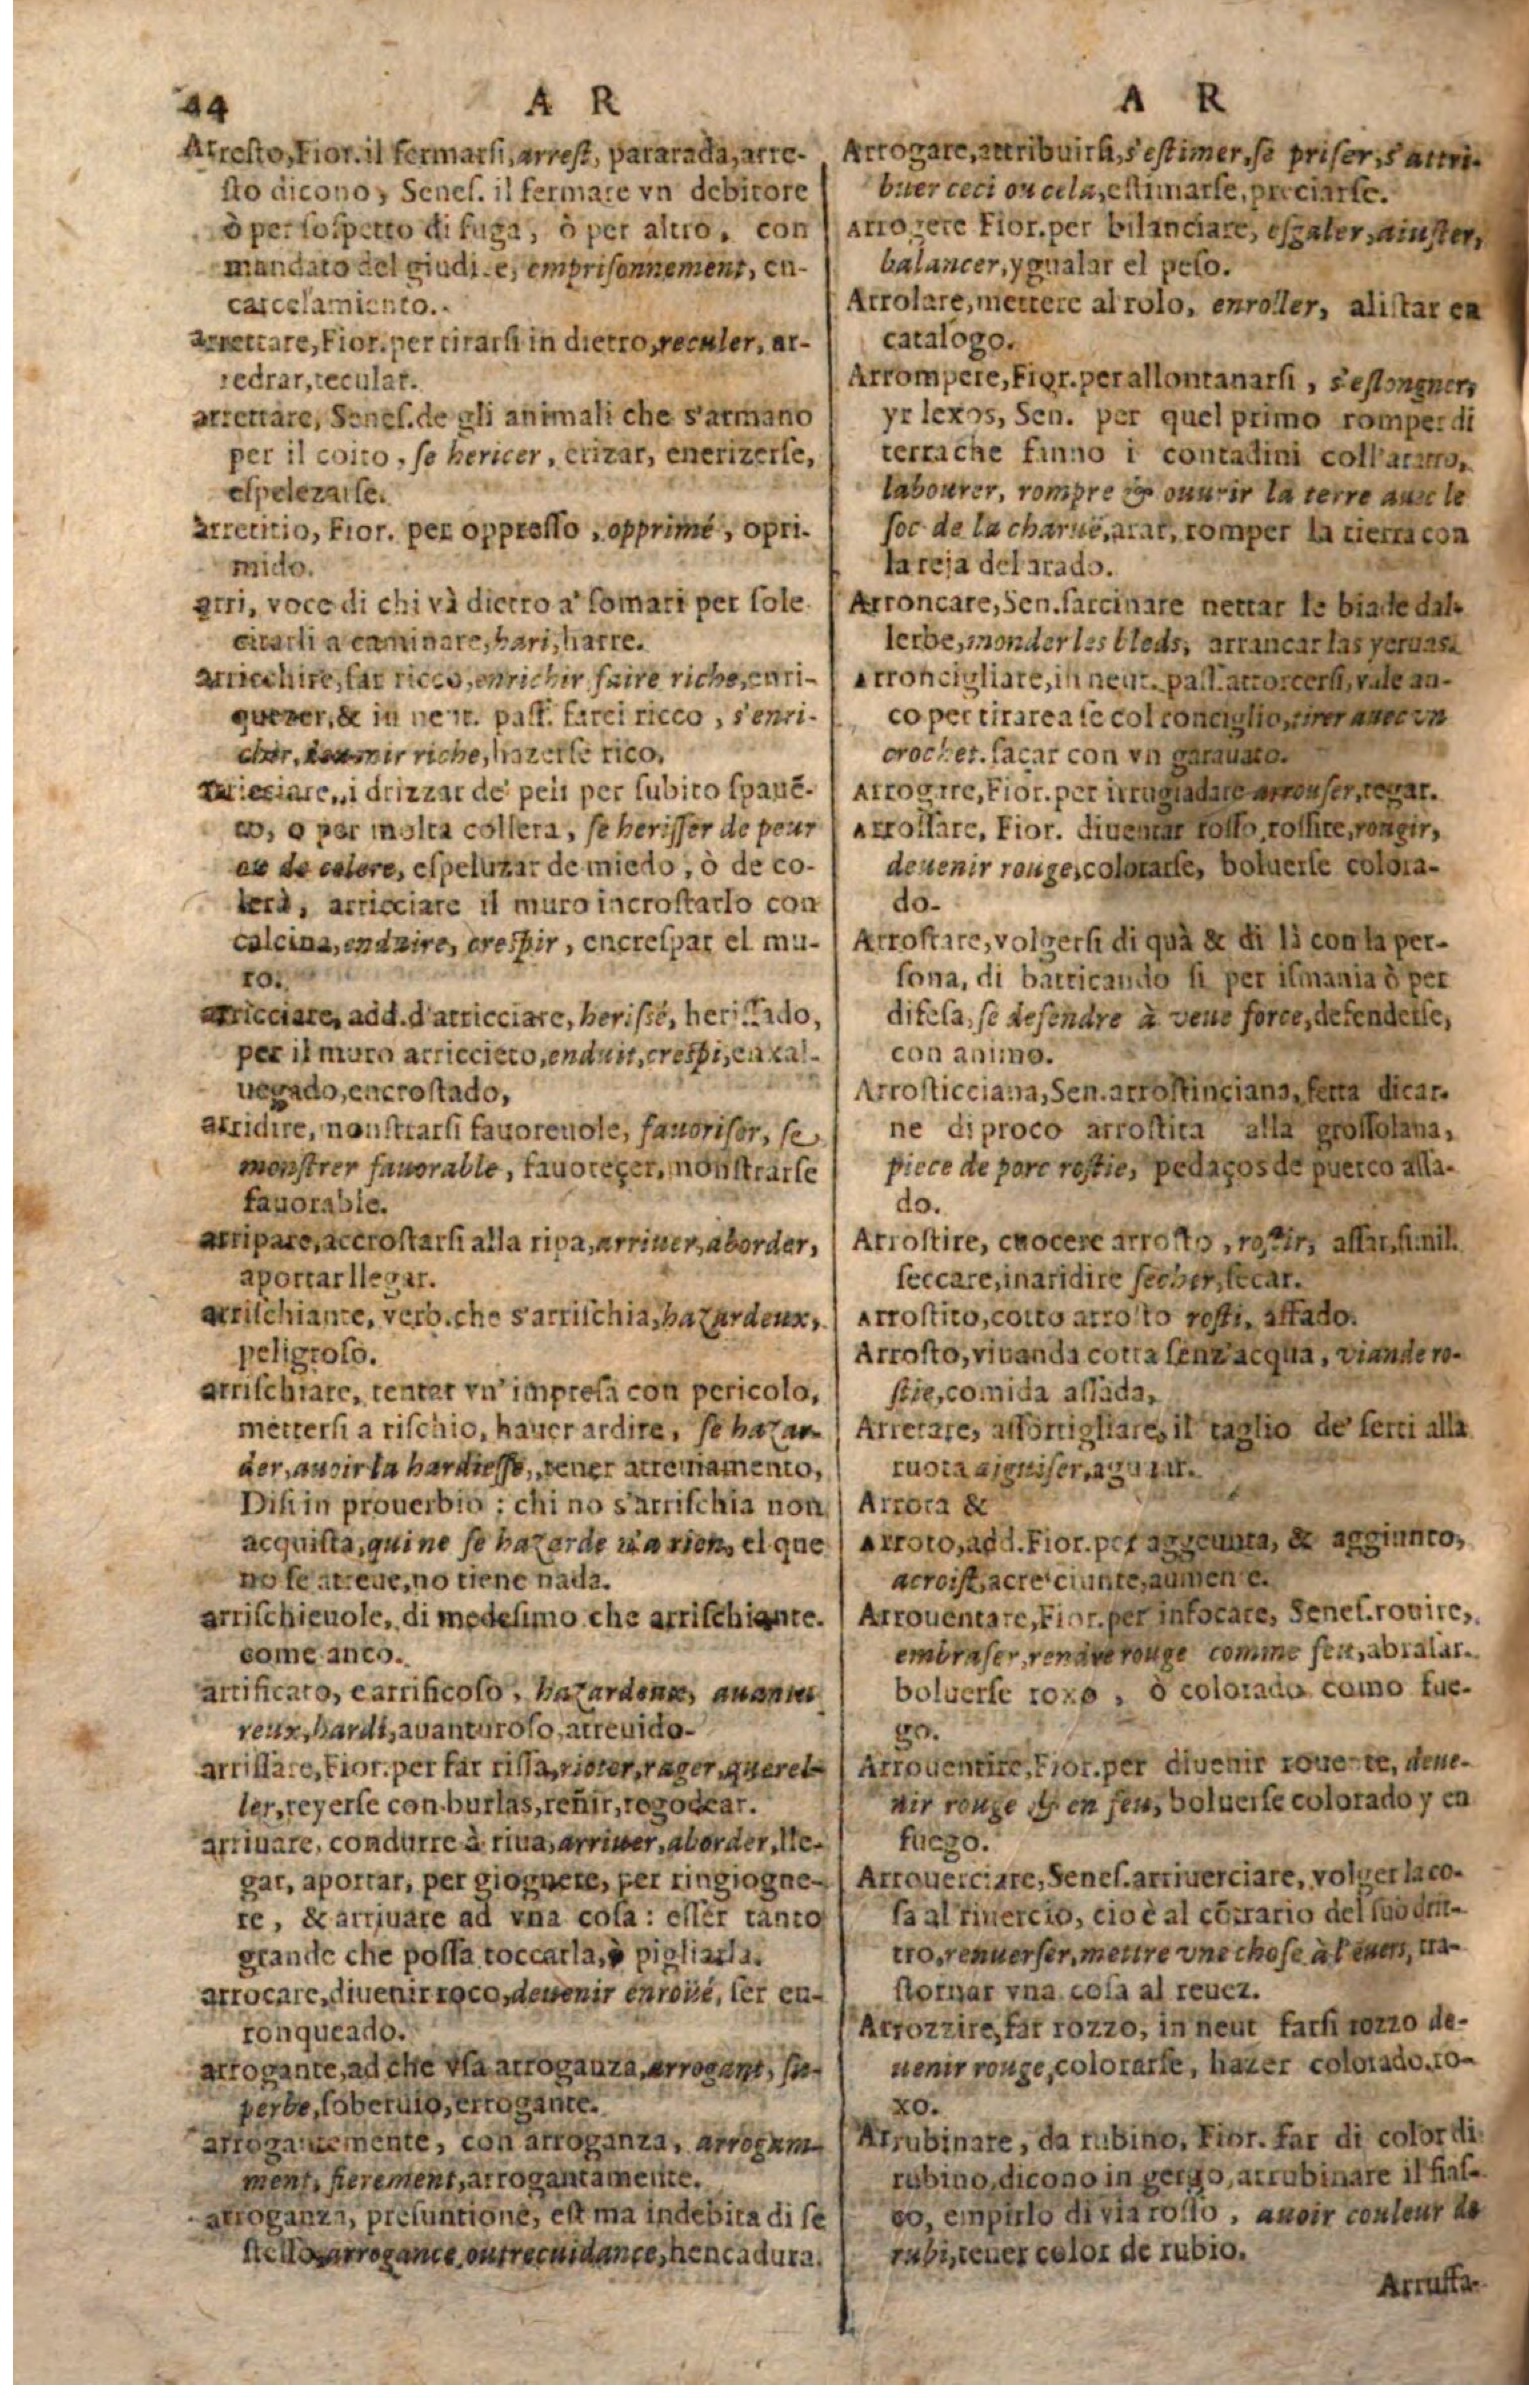 44 A R
Arresto, Fior. il fermarsi, arrest, pararada, arre-
sto dicono, Senes. il fermare vn debitore
ò per sospetto di fuga, ò per altro, con
mandato del giudi e, emprisonnement, en-
carcelamiento.
arrettare, Fior. per tirarsi in dietro, reculer, ar-
redrar, recular.
arrettare, Senes. de gli animali che s'armano
per il coito, se hericer, erizar, enerizerse,
espelezarse.
arretitio, Fior. per oppresso, opprimé, opri-
mido.
arri, voce di chi và dietro a' somari per sole
citarli a caminare, hari, harre.
arricchire, far ricco, enrichir faire riche, enri-
quezer, & in neut. pass. farci ricco, s'enri-
chir, deuenir riche, hazerse rico,
arricciare, i drizzar de' peli per subito spauẽ-
to, o per molta collera, se herisser de peur
ou de colere, espeluzar de miedo, ò de co-
lera, arricciare il muro incrostarlo con
calcina, enduire, crespir, encrespar el mu-
ro.
arricciare, add. d'arricciare, herissé, herissado,
per il muro arriccieto, enduit, crespi, enxal-
uegado, encrostado,
arridire, monstrarsi fauoreuole, fauoriser, se
monstrer fauorable, fauoreçer, monstrarse
fauorable.
arripare, accrostarsi alla ripa, arriuer, aborder,
aportar llegar.
arrischiante, verb. che s'arrischia, hazardeux,
peligroso.
arrischiare, tentar vn' impresa con pericolo,
mettersi a rischio, hauer ardire, se hazar-
der, auoir la hardiesse, tener atreuiamento,
Disi in prouerbio: chi no s'arrischia non
acquista, qui ne se hazarde n'a rien, el que
no se atreue, no tiene nada.
arrischieuole, di medesimo che arrischiante.
come anco.
arrificato, e arrificoso, hazardeux, auantu
reux, hardi, auanturoso, atreuido-
arrissare, Fior. per far rissa, rioter, rager, querel-
ler, reyerse con burlas, reñir, regodear.
arriuare, condurre à riua, arriuer, aborder, lle-
gar, aportar, per giognere, per ringiogne-
re, & arriuare ad vna cosa: esser tanto
grande che possa toccarla, ò pigliarla.
arrocare, diuenir roco, deuenir enroüé, ser en-
ronqueado.
arrogante, ad che vsa arroganza, arrogant, su-
perbe, soberuio, errogante.
arrogantemente, con arroganza, arrogam-
ment, fierement, arrogantamente.
arroganza, presuntione, est ma indebita di se
stesso, arrogance, outrecuidance, hencadura.
A R
Arrogare, attribuirsi, s'estimer, se priser, s'attri-
buer ceci ou cela, estimarse, preciarse.
Arrogere Fior. per bilanciare, esgaler, aiuster,
balancer, ygualar el peso.
Arrolare, mettere al rolo, enroller, alistar en
catalogo.
Arrompere, Fior. per allontanarsi, s'eslongner,
yr lexos, Sen. per quel primo romper di
terra che fanno i contadini coll'aratro,
labourer, rompre & ouurir la terre auec le
soc de la charuë, arar, romper la tierra con
la reja del arado.
Arroncare, Sen. sarcinare nettar le biade dal-
lerbe, monder les bleds, arrancar las yeruas.
Arroncigliare, in neut. pass. attorcersi, vale an-
co per tirare a se col ronciglio, tirer auec vn
crochet. saçar con vn garauato.
Arrogare, Fior. per irrugiadare arrouser, regar.
Arrossare, Fior. diuentar rosso, rossire, rougir,
deuenir rouge, colorarse, boluerse colora-
do-
Arrostare, volgersi di quà & di là con la per-
sona, di batticando si per ismania ò per
difesa, se defendre à veue force, defenderse,
con animo.
Arrosticciana, Sen. arrostinciana, fetta dicar-
ne di proco arrostita alla grossolana,
piece de porc rostie, pedaços de puerco assa-
do.
Arrostire, cuocere arrosto, rostir, assar, simil.
seccare, inaridire secher, secar.
Arrostito, cotto arrosto rosti, assado.
Arrosto, viuanda cotta senz'acqua, viande ro-
stie, comida assada,
Arretare, assottigliare, il taglio de' ferri alla
ruota aiguiser, aguzar.
Arrota &
Arroto, add. Fior. per aggeunta, & aggiunto,
acroist, acreciunte, aumen e.
Arrouentare, Fior. per infocare, Senes. rouire,
embraser, rendre rouge comme feu, abrasar.
boluerse roxo, ò colorado como fue-
go.
Arrouentire, Fior. per diuenir rouente, deue-
nir rouge & en feu, boluerse colorado y en
fuego.
Arrouerciare, Senes. arriuerciare, volger la co-
sa al riuercio, cioè al cõtrario del suo drit-
tro, renuerser, mettre vne chose à l'enuers, tra-
stornar vna cosa al reuez.
Arrozzire, far rozzo, in neut farsi rozzo de-
uenir rouge, colorarse, hazer colorado. ro-
xo.
Arrubinare, da rubino, Fior. far di color di
rubino, dicono in gergo, arrubinare il fias-
co, empirlo di via rosso, auoir couleur de
rubi, tener color de rubio.
Arruffa-